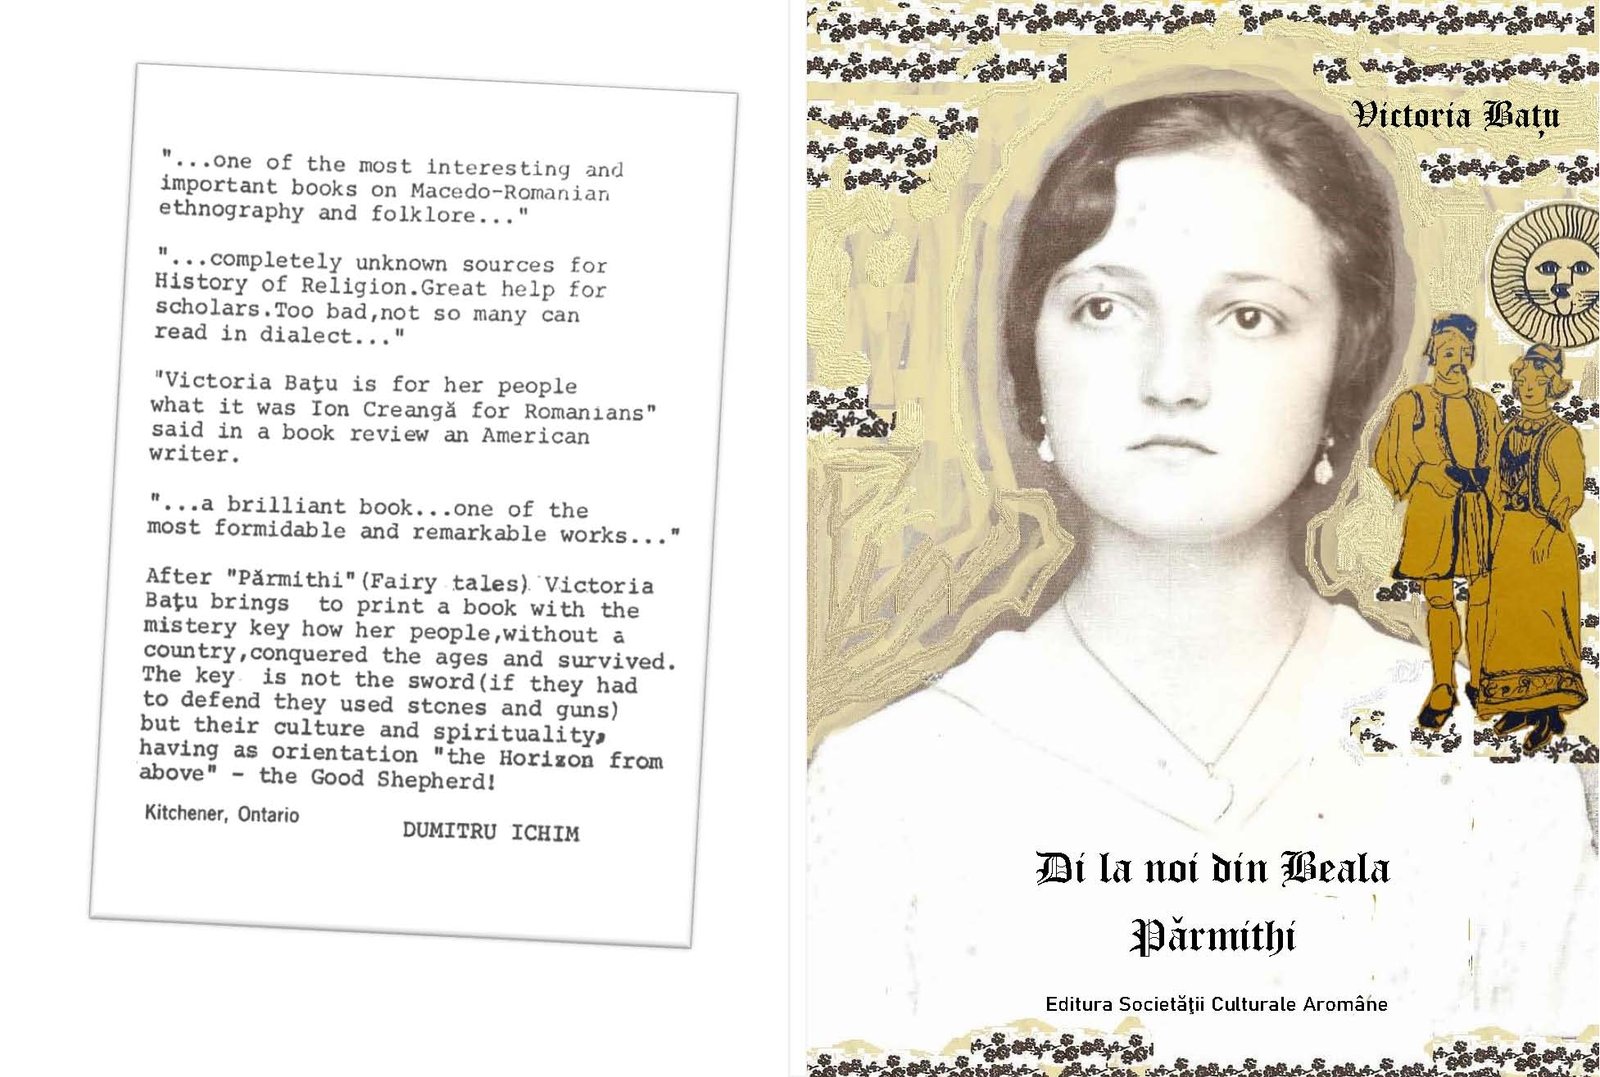 "...one of the most interesting and
important books on Macedo-Romanian
ethnography and folklore..."
"...completely unknown sources for
History of Religion.Great help for
scholars.Too bad,not so many can
read in dialect..."
"Victoria Bațu is for her people
what it was Ion Creangă for Romanians"
said in a book review an American
writer.
"...a brilliant book...one of the
most formidable and remarkable works..."
After "Părmithi"(Fairy tales) Victoria
Bațu brings to print a book with the
mistery key how her people,without a
country,conquered the ages and survived.
The key is not the sword(if they had
to defend they used stones and guns)
but their culture and spirituality,
having as orientation "the Horizon from
above" - the Good Shepherd!
Kitchener, Ontario
DUMITRU ICHIM
Victoria Bațu
Di la noi din Beala
Părmithi
Editura Societăţii Culturale Aromâne